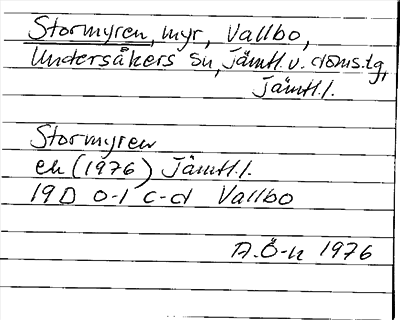 Stormyren, myr, Vallbo,
Undersåkers sn, Jämtl. v. doms.tg,
Jämtl.l.
Stormyren
ek (1976) Jämtl.l.
19D 0-1 c-d Vallbo
A.Ö-n 1976